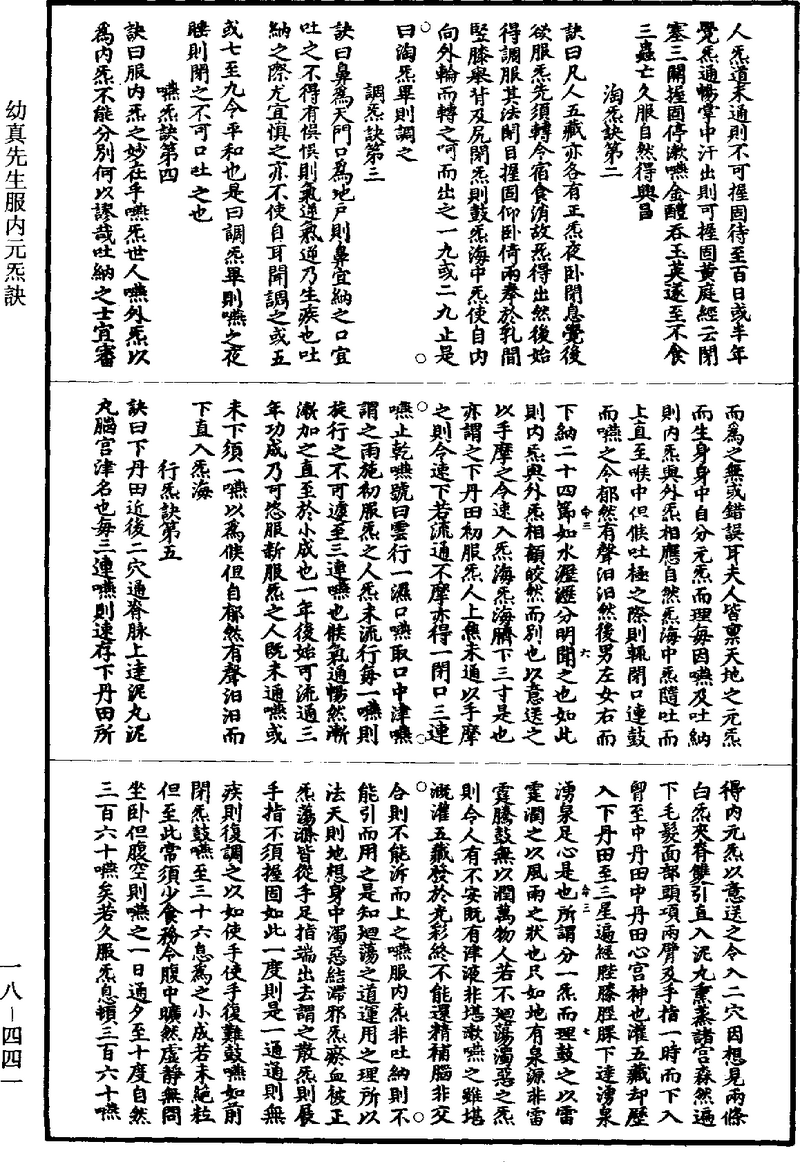 人炁道未通則不可握固待至百日或半年
覺炁通暢掌中汗出則可握固黃庭經云閉
塞三關握固停漱嚥金醴吞玉英遂至不食
三蟲亡久服自然得興昌
淘炁訣第二
訣曰凡人五藏亦各有正炁夜卧閉息覺後
欲服炁先須轉令宿食消故炁得出然後始
得調服其法閉目握固仰卧倚兩拳於乳間
竪膝舉背及尻閉炁則鼓炁海中炁使自内
向外輪而轉之呵而出之一九或二九止是
曰淘炁畢則調之
調炁訣第三
訣曰鼻爲天門口爲地戸則鼻宜納之口宜
吐之不得有悮悮則氣逆氣逆乃生疾也吐
納之際尤宜慎之亦不使自耳聞調之或五
或七至九令平和也是曰調炁畢則嚥之夜
睡則閉之不可口吐之也
嚥炁訣第四
訣曰服内炁之妙在乎嚥炁世人嚥外炁以
爲内炁不能分别何以謬哉吐納之士宜審
而爲之無或錯誤耳夫人皆禀天地之元炁
而生身身中自分元炁而理每因嚥及吐納
則内炁與外炁相應自然炁海中炁隨吐而
上直至喉中但候吐極之際則輒閉口連鼓
而嚥之令郁然有聲汩汩然後男左女右而
下納二十四節如水瀝瀝分明聞之也如此
則内炁與外炁相顧皎然而别也以意送之
以手摩之令速入炁海炁海臍下三寸是也
亦謂之下丹田初服炁人上焦未通以手摩
之則令速下若流通不摩亦得一閉口三連
嚥止乾嚥號曰雲行一濕口嚥取口中津嚥
謂之雨施初服炁之人炁未流行每一嚥則
旋行之不可遽至三連嚥也候氣通暢然漸
漸加之直至於小成也一年後始可流通三
年功成乃可恣服新服炁之人既未通嚥或
未下須一嚥以爲候但自郁然有聲汩汩而
下直入炁海
行炁訣第五
訣曰下丹田近後二穴通脊脉上達泥丸泥
丸腦宫津名也每三連嚥則速存下丹田所
得内元炁以意送之令入二穴因想見兩條
白炁夾脊雙引直入泥丸熏蒸諸宫森然遍
下毛髮面部頭項兩臂及手指一時而下入
胷至中丹田中丹田心宫神也灌五藏却歷
入下丹田至三星遍經䏶膝脛踝下達湧泉
湧泉足心是也所謂分一炁而理鼓之以雷
霆潤之以風雨之狀也只如地有泉源非雷
霆騰鼓無以潤萬物人若不廻蕩濁惡之炁
則令人有不安既有津液非堪漱嚥之雖堪
溉灌五藏發於光彩終不能還精補腦非交
合則不能泝而上之嚥服内炁非吐納則不
能引而用之是知廻蕩之道運用之理所以
法天則地想身中濁惡結滯邪炁瘀血被正
炁蕩滌皆從手足指端出去謂之散炁則展
手指不須握固如此一度則是一通通則無
疾則復調之以如使手使手復難鼓嚥如前
閉炁鼓嚥至三十六息爲之小成若未絶粒
但至此常須少食務令腹中曠然虚靜無問
坐卧但腹空則嚥之一日通夕至十度自然
三百六十嚥矣若久服炁息頓三百六十嚥
幼真先生服内元炁訣
一八－四四一